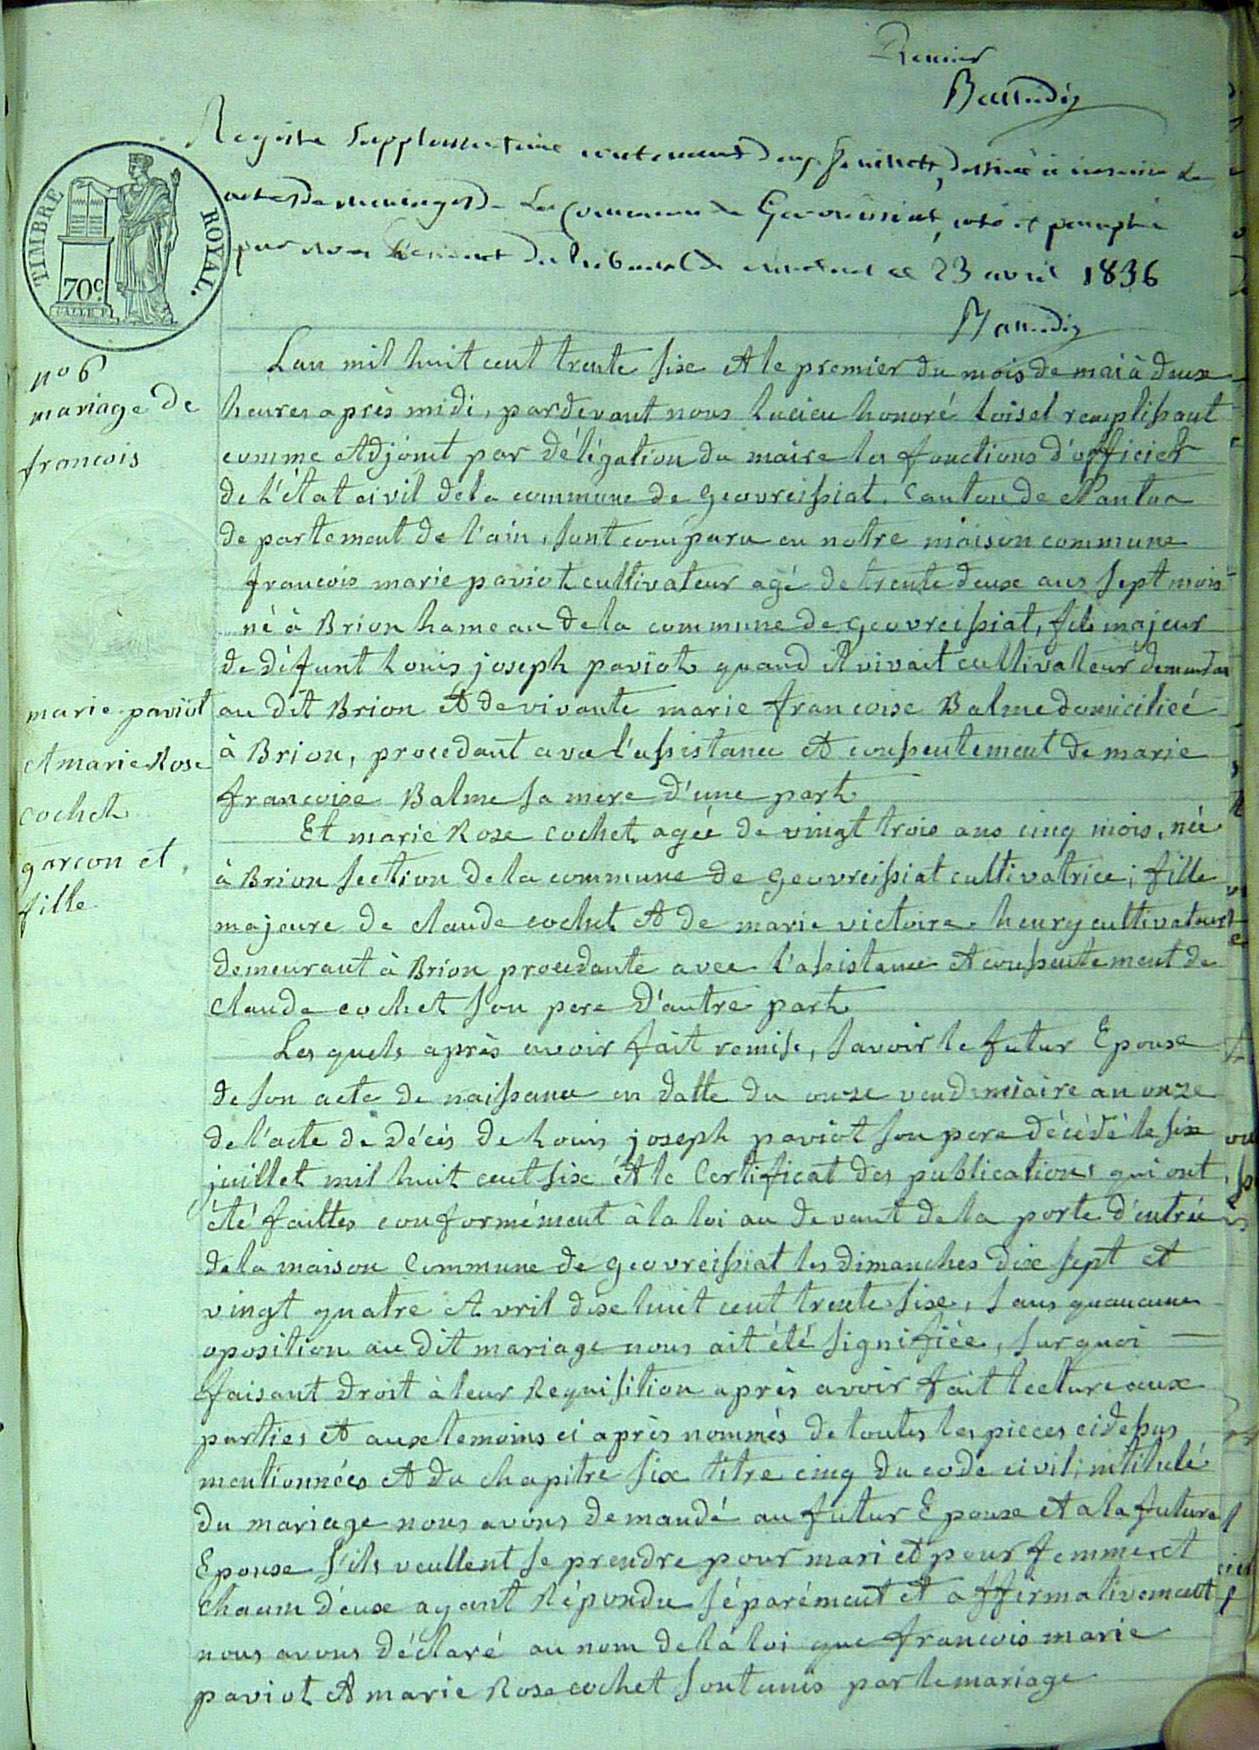 Premier
Registre supplémentaire contenant deux feuillets, destiné à inscrire les
actes de mariages de la commune de Geovreissiat, coté et paraphé
par nous Président du tribunal de Nantua ce 23 avril 1836
TIMBRE ROYAL.
70c
no 6
mariage de
francois
marie paviot
et marie Rose
cochet
garcon et
fille
Lan mil huit cent trente six et le premier du mois de mai à deux
heures après midi, pardevant nous lucien honoré loisel remplissant
comme adjoint par délégation du maire les fonctions d'officier
de l'état civil de la commune de geovreissiat. Canton de Nantua
departement de l'ain, sont comparu en notre maison commune
francois marie paviot cultivateur agé de trente deux ans sept mois
né à Brion hameau de la commune de geovreissiat, fils majeur
de défunt louis joseph paviot quand il vivait cultivateur demeurant
au dit Brion et de vivante marie francoise Balme domiciliée
à Brion, procedant avec l'assistance et consentement de marie
francoise Balme sa mere d'une part
Et marie Rose cochet agée de vingt trois ans cinq mois, née
à Brion section de la commune de geovreissiat cultivatrice, fille
majeure de claude cochet et de marie victoire henry cultivateurs
demeurant à Brion procedante avec l'assistance et consentement de
claude cochet son pere d'autre part
Les quels après avoir fait remise, savoir le futur Epoux
de son acte de naissance en datte du onze vendemiaire an onze
de l'acte de décès de louis joseph paviot son pere décédé le six
juillet mil huit cent six et le Certificat des publications qui ont
été faittes conformément à la loi au devant de la porte d'entrée
de la maison Commune de geovreissiat les dimanches dix sept et
vingt quatre avril dix huit cent trente six, sans quaucune
oposition au dit mariage nous ait été signifiée, sur quoi
faisant droit à leur Requisition après avoir fait lecture aux
parties et aux temoins ci après nommés de toutes les pieces ci dessus
mentionnées et du chapitre six titre cinq du code civil, intitulé
du mariage nous avons demandé au futur Epoux et a la future
Epouse s'ils veullent se prendre pour mari et pour femme et
chacun d'eux ayant Répondu séparément et affirmativement
nous avons déclaré au nom de la loi que francois marie
paviot et marie Rose cochet sont unis par le mariage